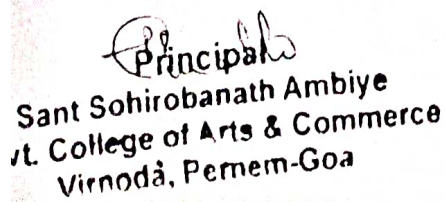 Principal
Sant Sohirobanath Ambiye
vt. College of Arts & Commerce
Virnoda, Pernem-Goa